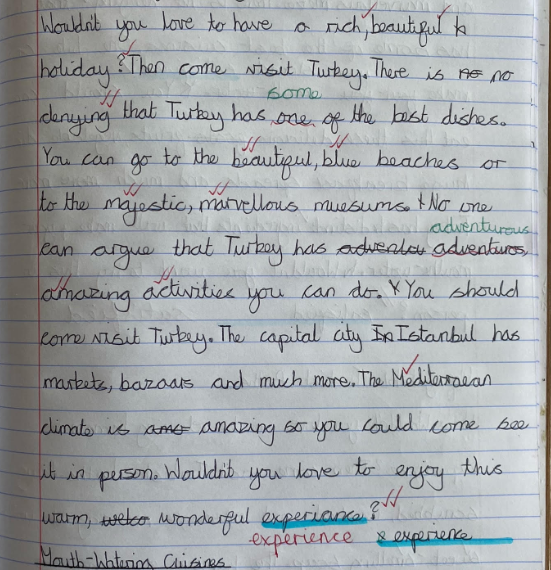 Wouldn't you love to have a rich, beautiful h
holiday? Then come visit Turkey. There is no no
some
denying that Turkey has one of the best dishes.
You can go to the beautiful, blue beaches or
to the majestic, marvellous muesums. No one
adventurous
can argue that Turkey has adventures,
amazing activities you can do. You should
come visit Turkey. The capital city In Istanbul has
markets, bazaars and much more. The Mediterraean
climate is amazing so you could come see
it in person. Wouldn't you love to enjoy this
warm, welco wonderful experiance?
experience x experience
Mouth-Watering Cuisines